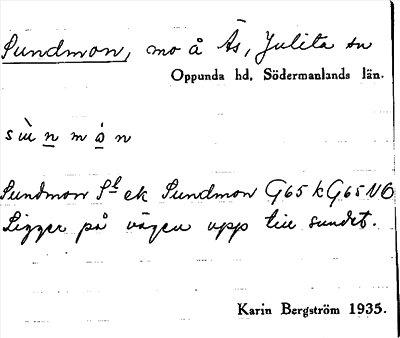 Sundmon, mo å Ås, Julita sn
Oppunda hd, Södermanlands län.
sùnmón
Sundmon Sl ek Sundmon G65 k G65 NO
Ligger på vägen upp till sundet.
Karin Bergström 1935.